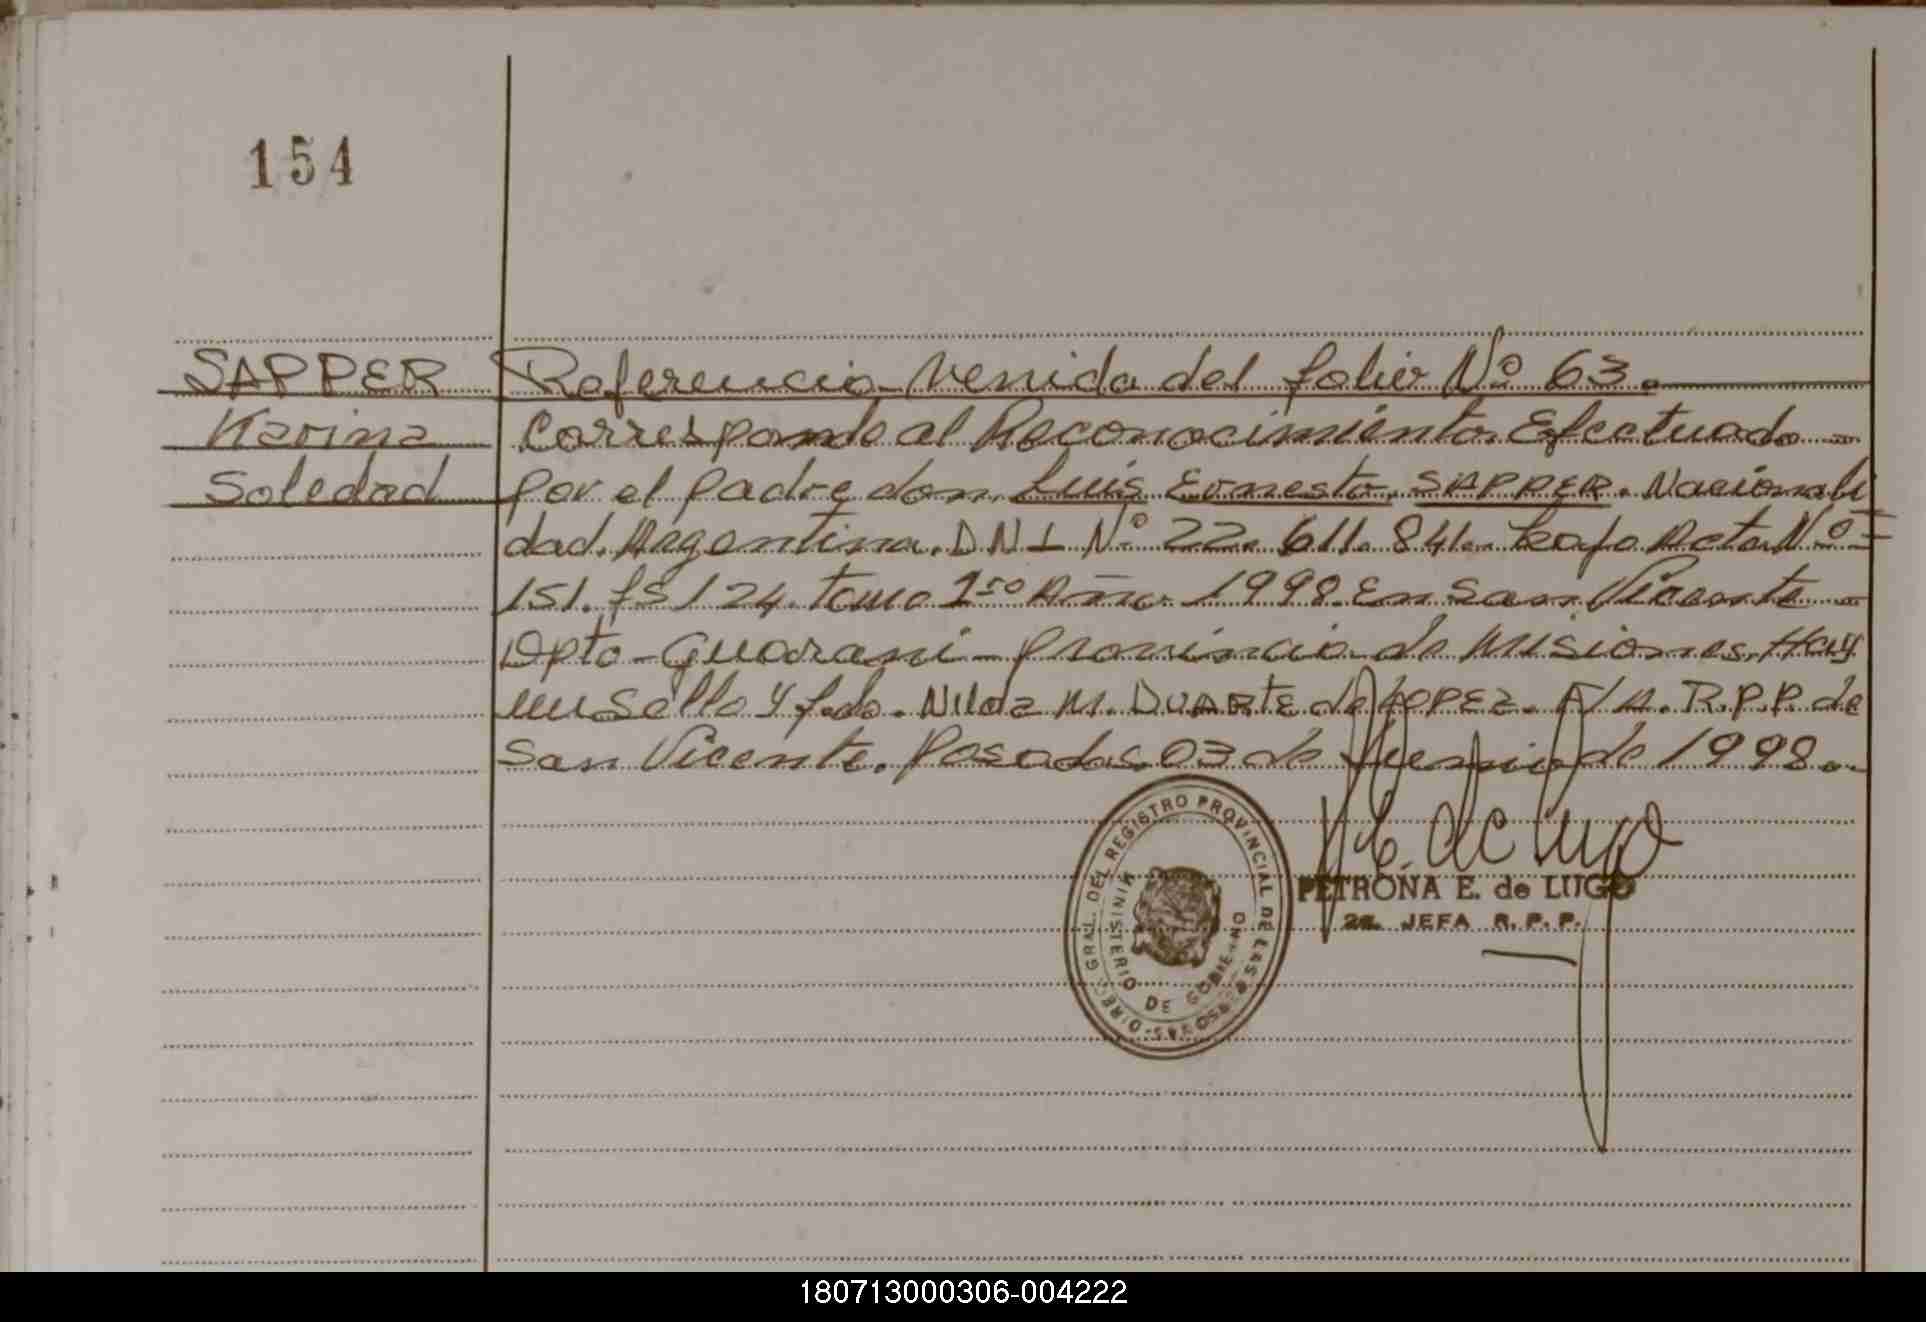 154
SAPPER
Karina
Soledad
Referencia venida del folio Nº 63.
Corresponde al Reconocimiento Efectuado
por el padre don Luis Ernesto SAPPER. Nacionali
dad Argentina. DNI Nº 22.611.841. bajo Acta Nº
151. fs 124. tomo 1ro Año 1998. En San Vicente
Dpto - Guarani - Provincia de Misiones. Hay
un Sello y fdo. Nilda M. DUARTE de LOPEZ. A/A. R.P.P. de
San Vicente. Posadas. 03 de de 1998.
DIREC. GRAL. DEL REGISTRO PROVINCIAL DE LAS PERSONAS
MINISTERIO DE GOBIERNO
P.E. de Lugo
PETRONA E. de LUGO
2a. JEFA R.P.P.
180713000306-004222